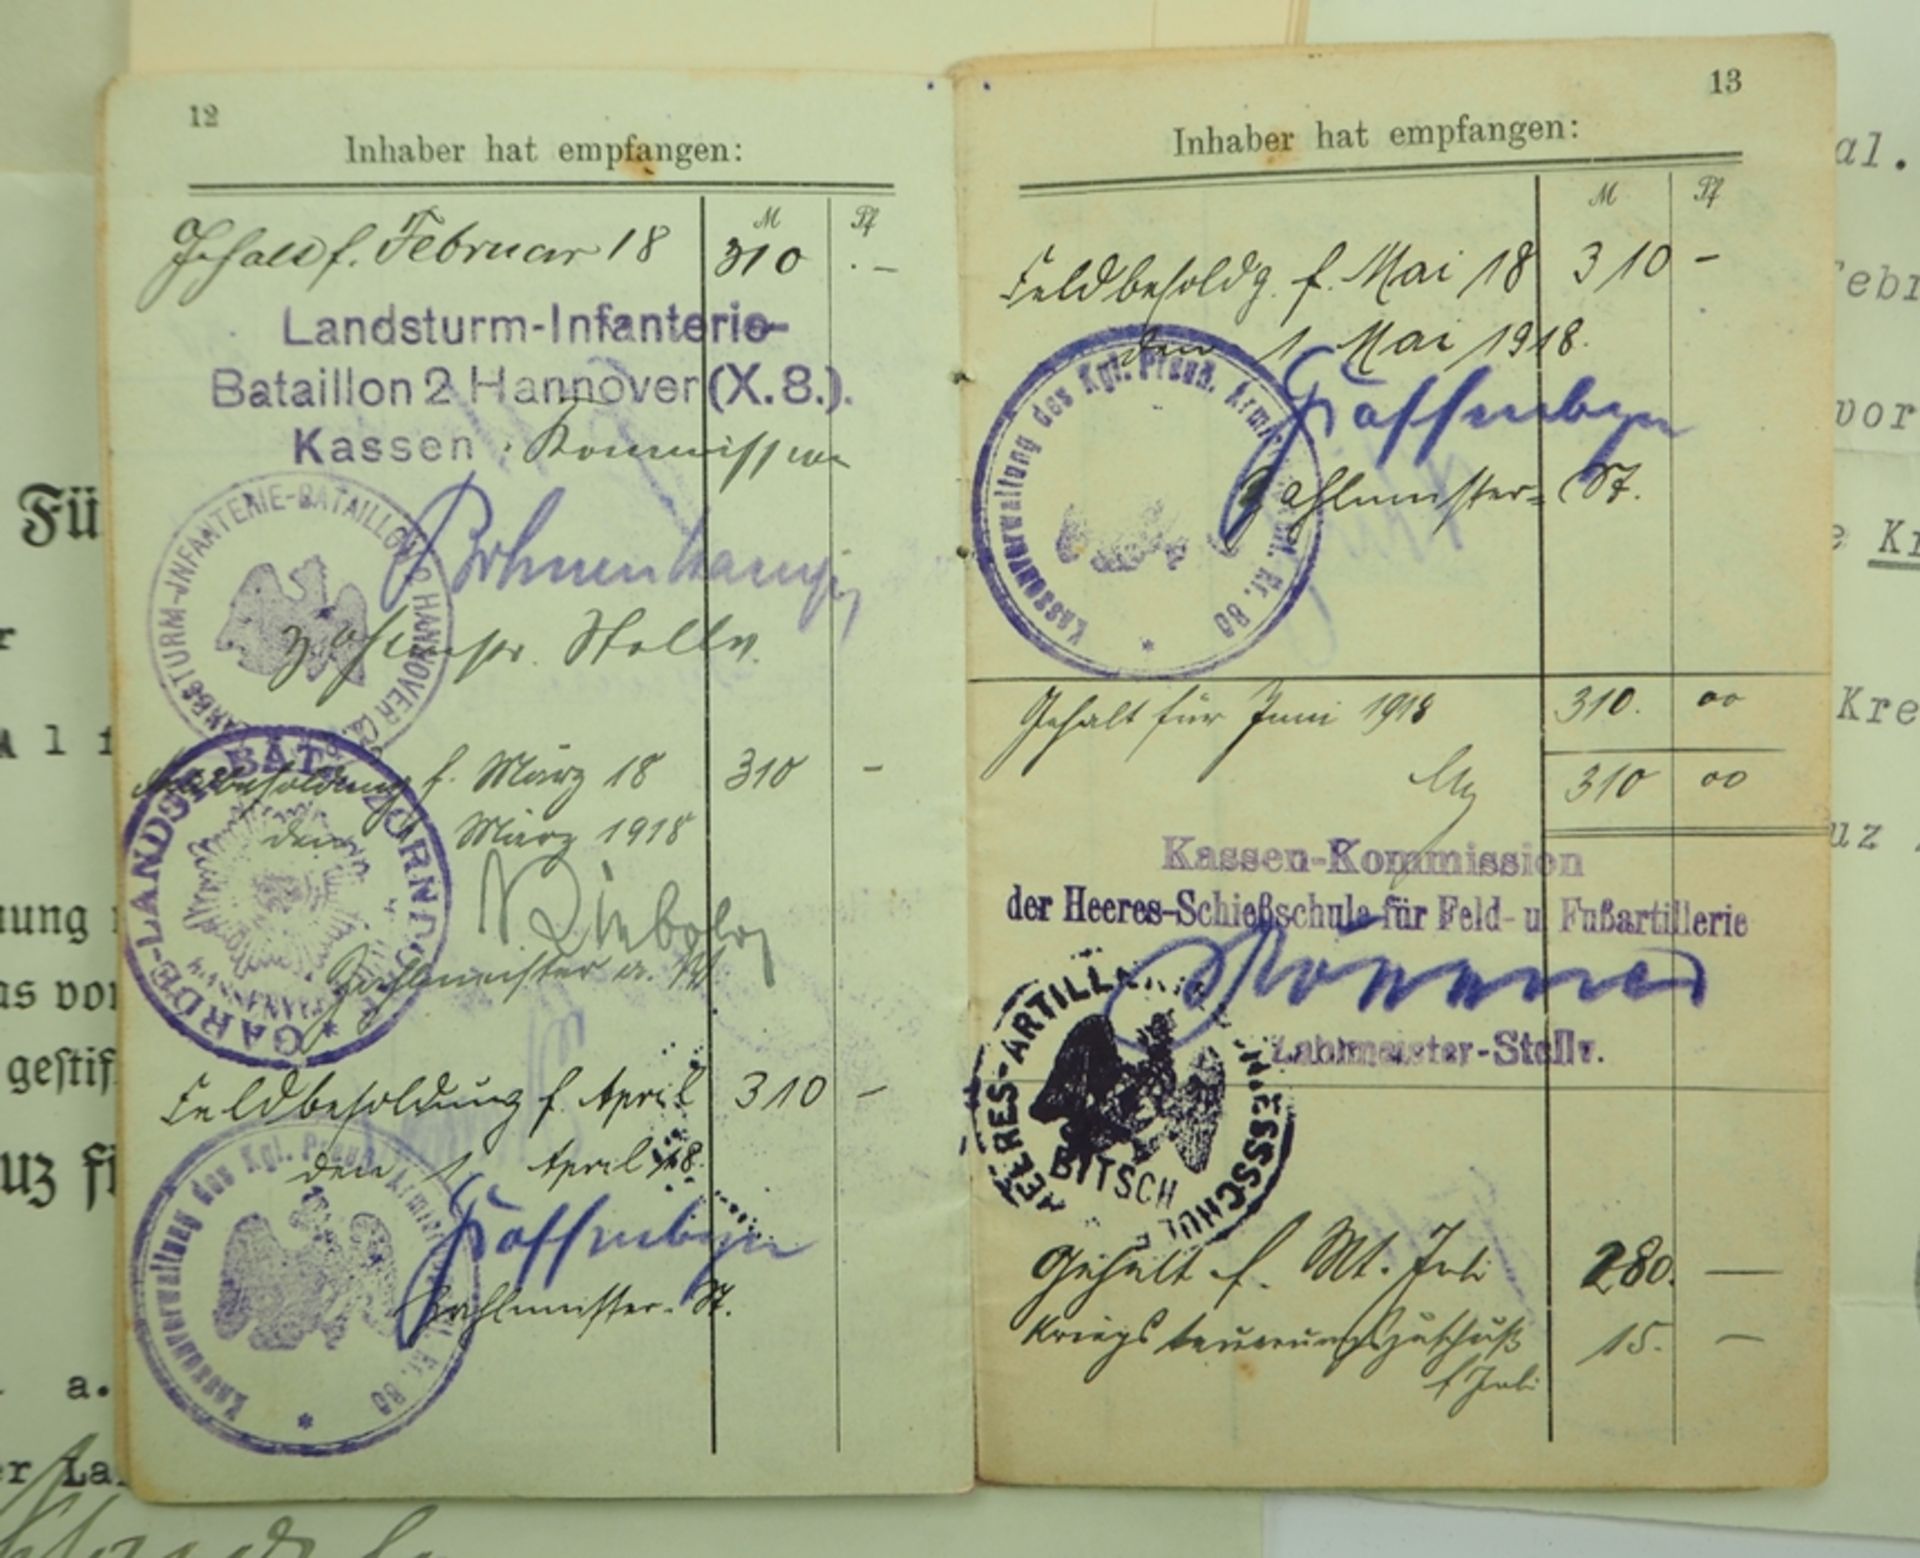 12
Inhaber hat empfangen:
M Pf
Gehalt f. Februar 18 310 . –
Landsturm-Infanterie-
Bataillon 2 Hannover (X. 8.).
Kassen Kommission
LANDSTURM-INFANTERIE-BATAILLON 2 HANNOVER
Bohnenkamp
Zahlmstr. Stellv.
Feldbesoldung f. März 18 310 –
den März 1918
GARDE-LANDST. BAT. ZORNDORF
Zahlmeister a. W
Feldbesoldung f. April 310 –
den 1 April 18.
Kassenverwaltung des Kgl. Preuß. Armier. Batl. Nr. 80
Zahlmeister-St.
13
Inhaber hat empfangen:
M Pf
Feldbesoldg. f. Mai 18 310 –
den 1 Mai 1918.
Kassenverwaltung des Kgl. Preuß. Armier. Batl. Nr. 80
Zahlmeister-St.
Gehalt für Juni 1918 310. 00
310 00
Kassen-Kommission
der Heeres-Schießschule für Feld- u Fußartillerie
Zahlmeister-Stellv.
HEERES-ARTILL SCHIESSSCHULE
BITSCH
Gehalt f. Mt. Juli 280. —
Kriegsteuerungszuschuß 15. –
f Juli
Fü
r
A l f
nung
as vor
gestif
uz fü
a.
er La
al.
ebr
vor
e Kr
Kre
uz